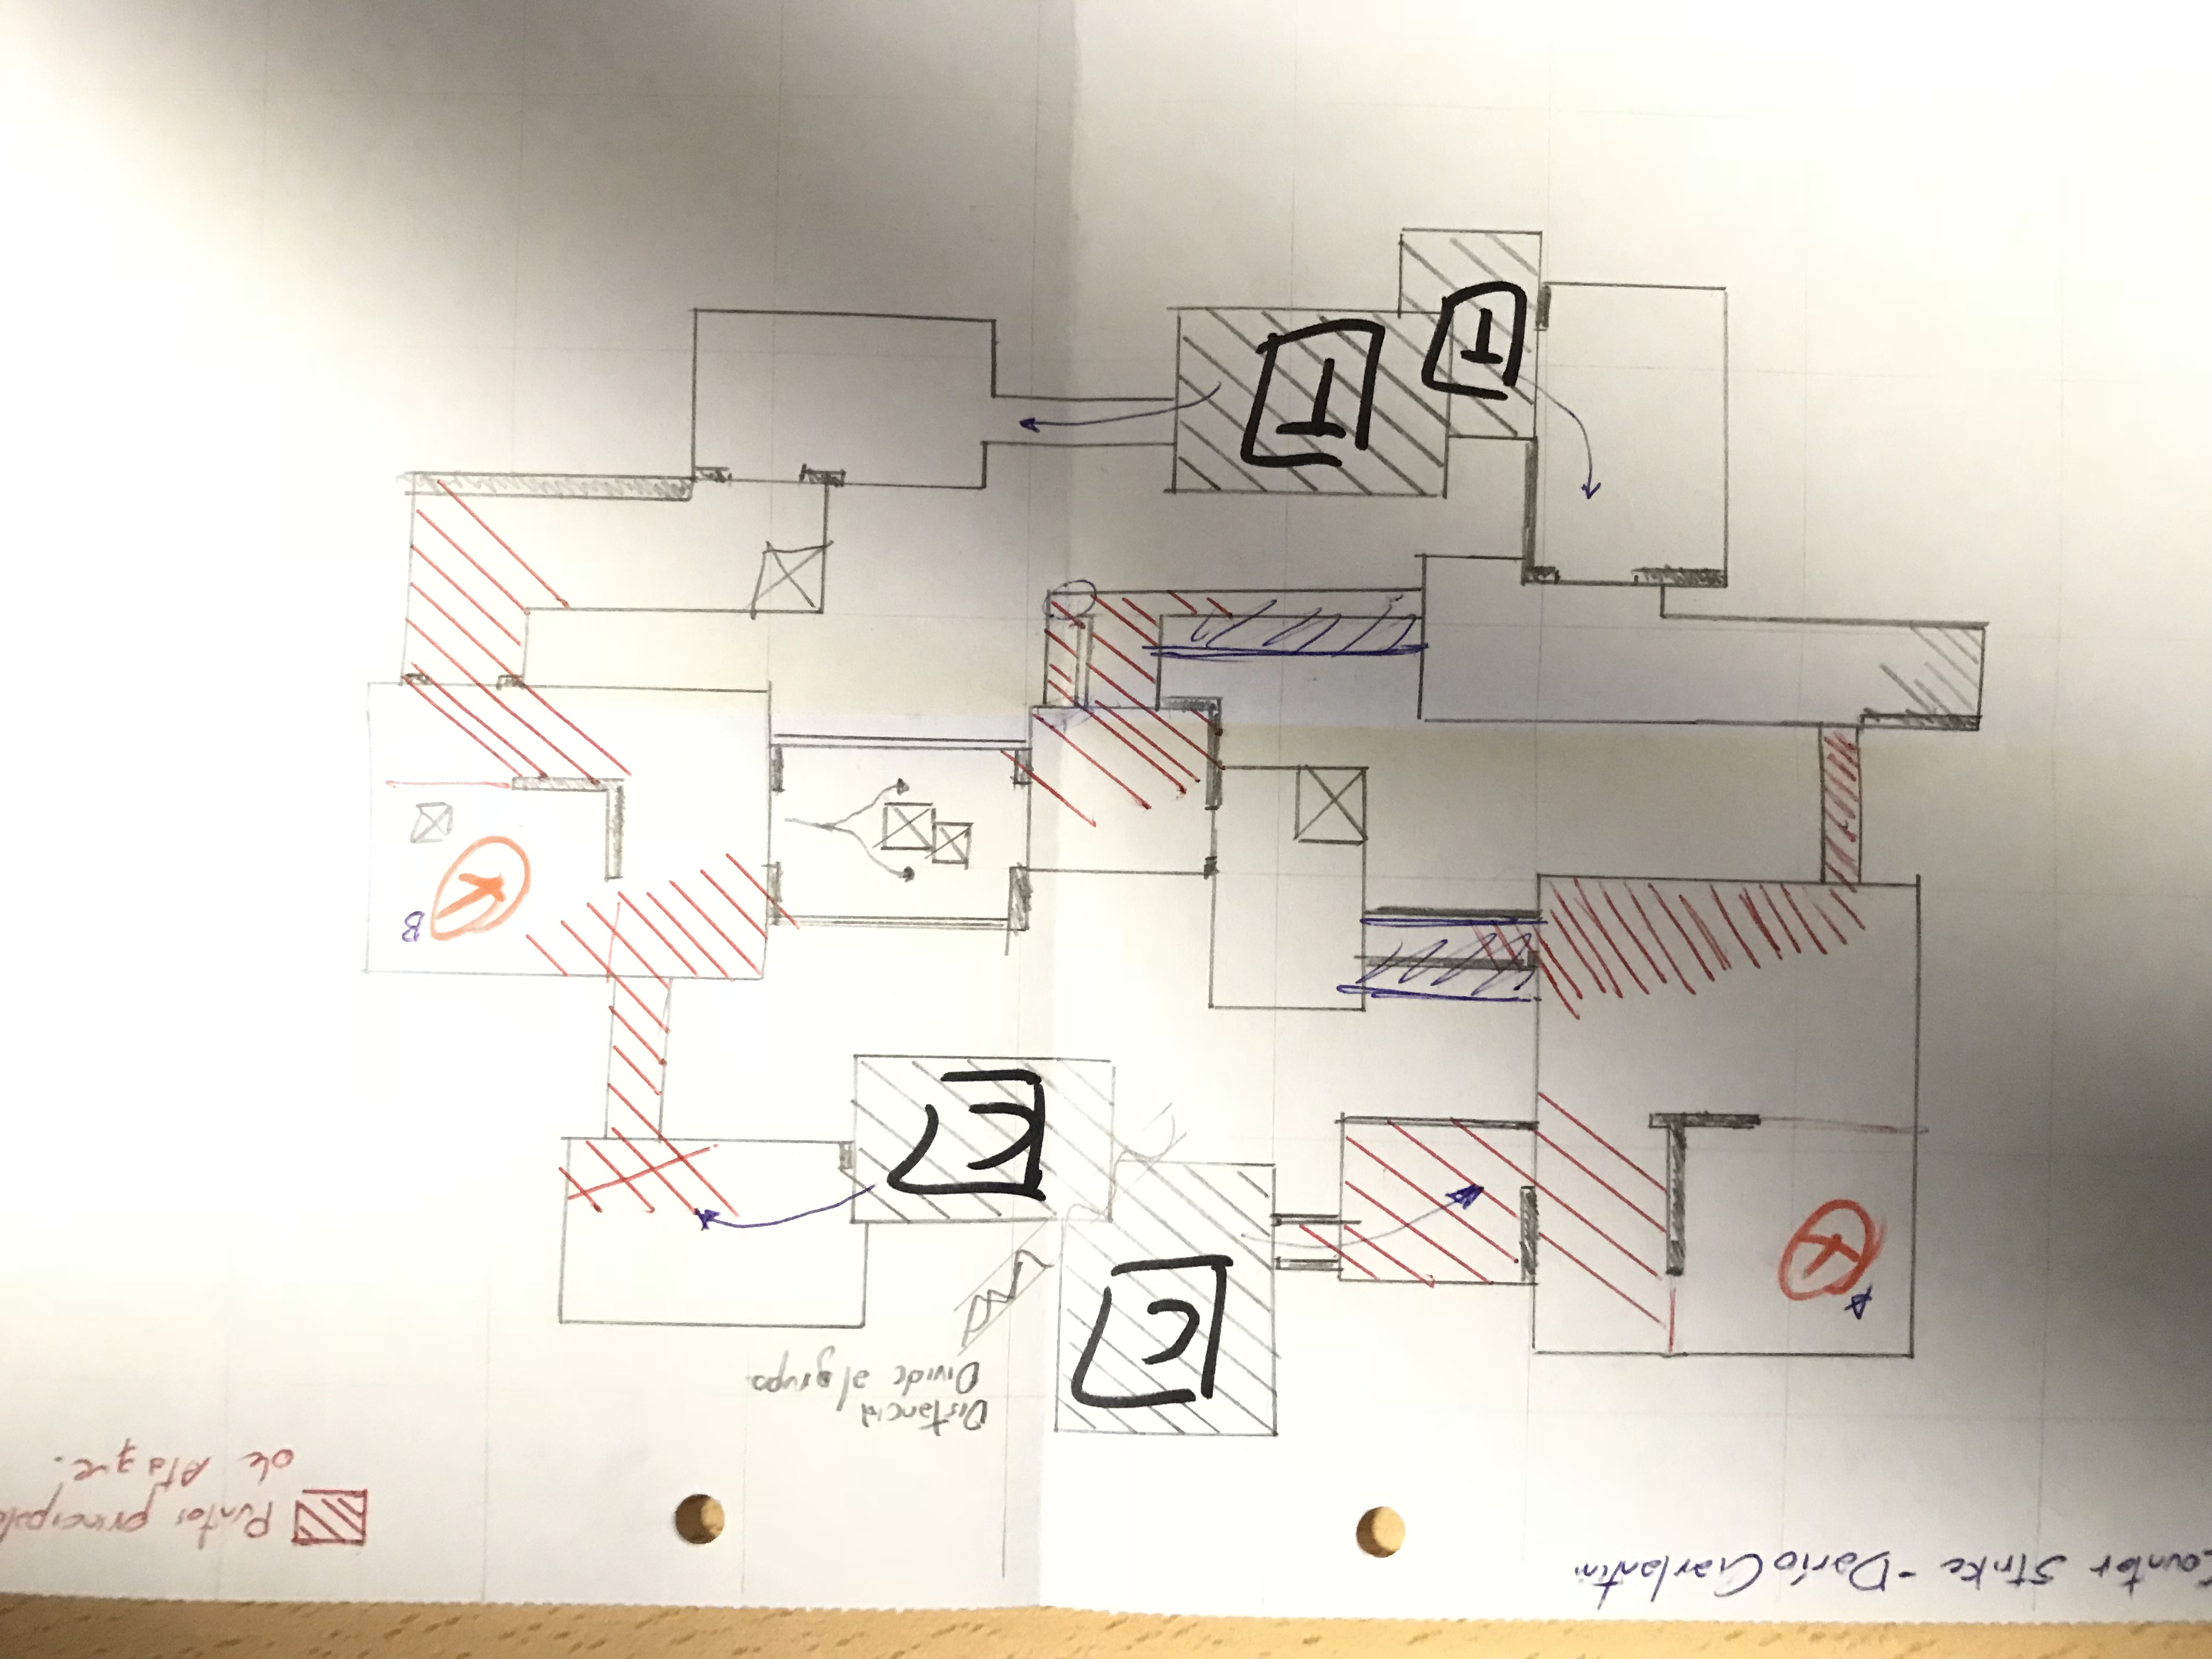 Counter Strike - Darío Ciarlantini
Puntos principale
de Ataque.
Distancia
Divide al grupo.
A
B
C
C
T
T